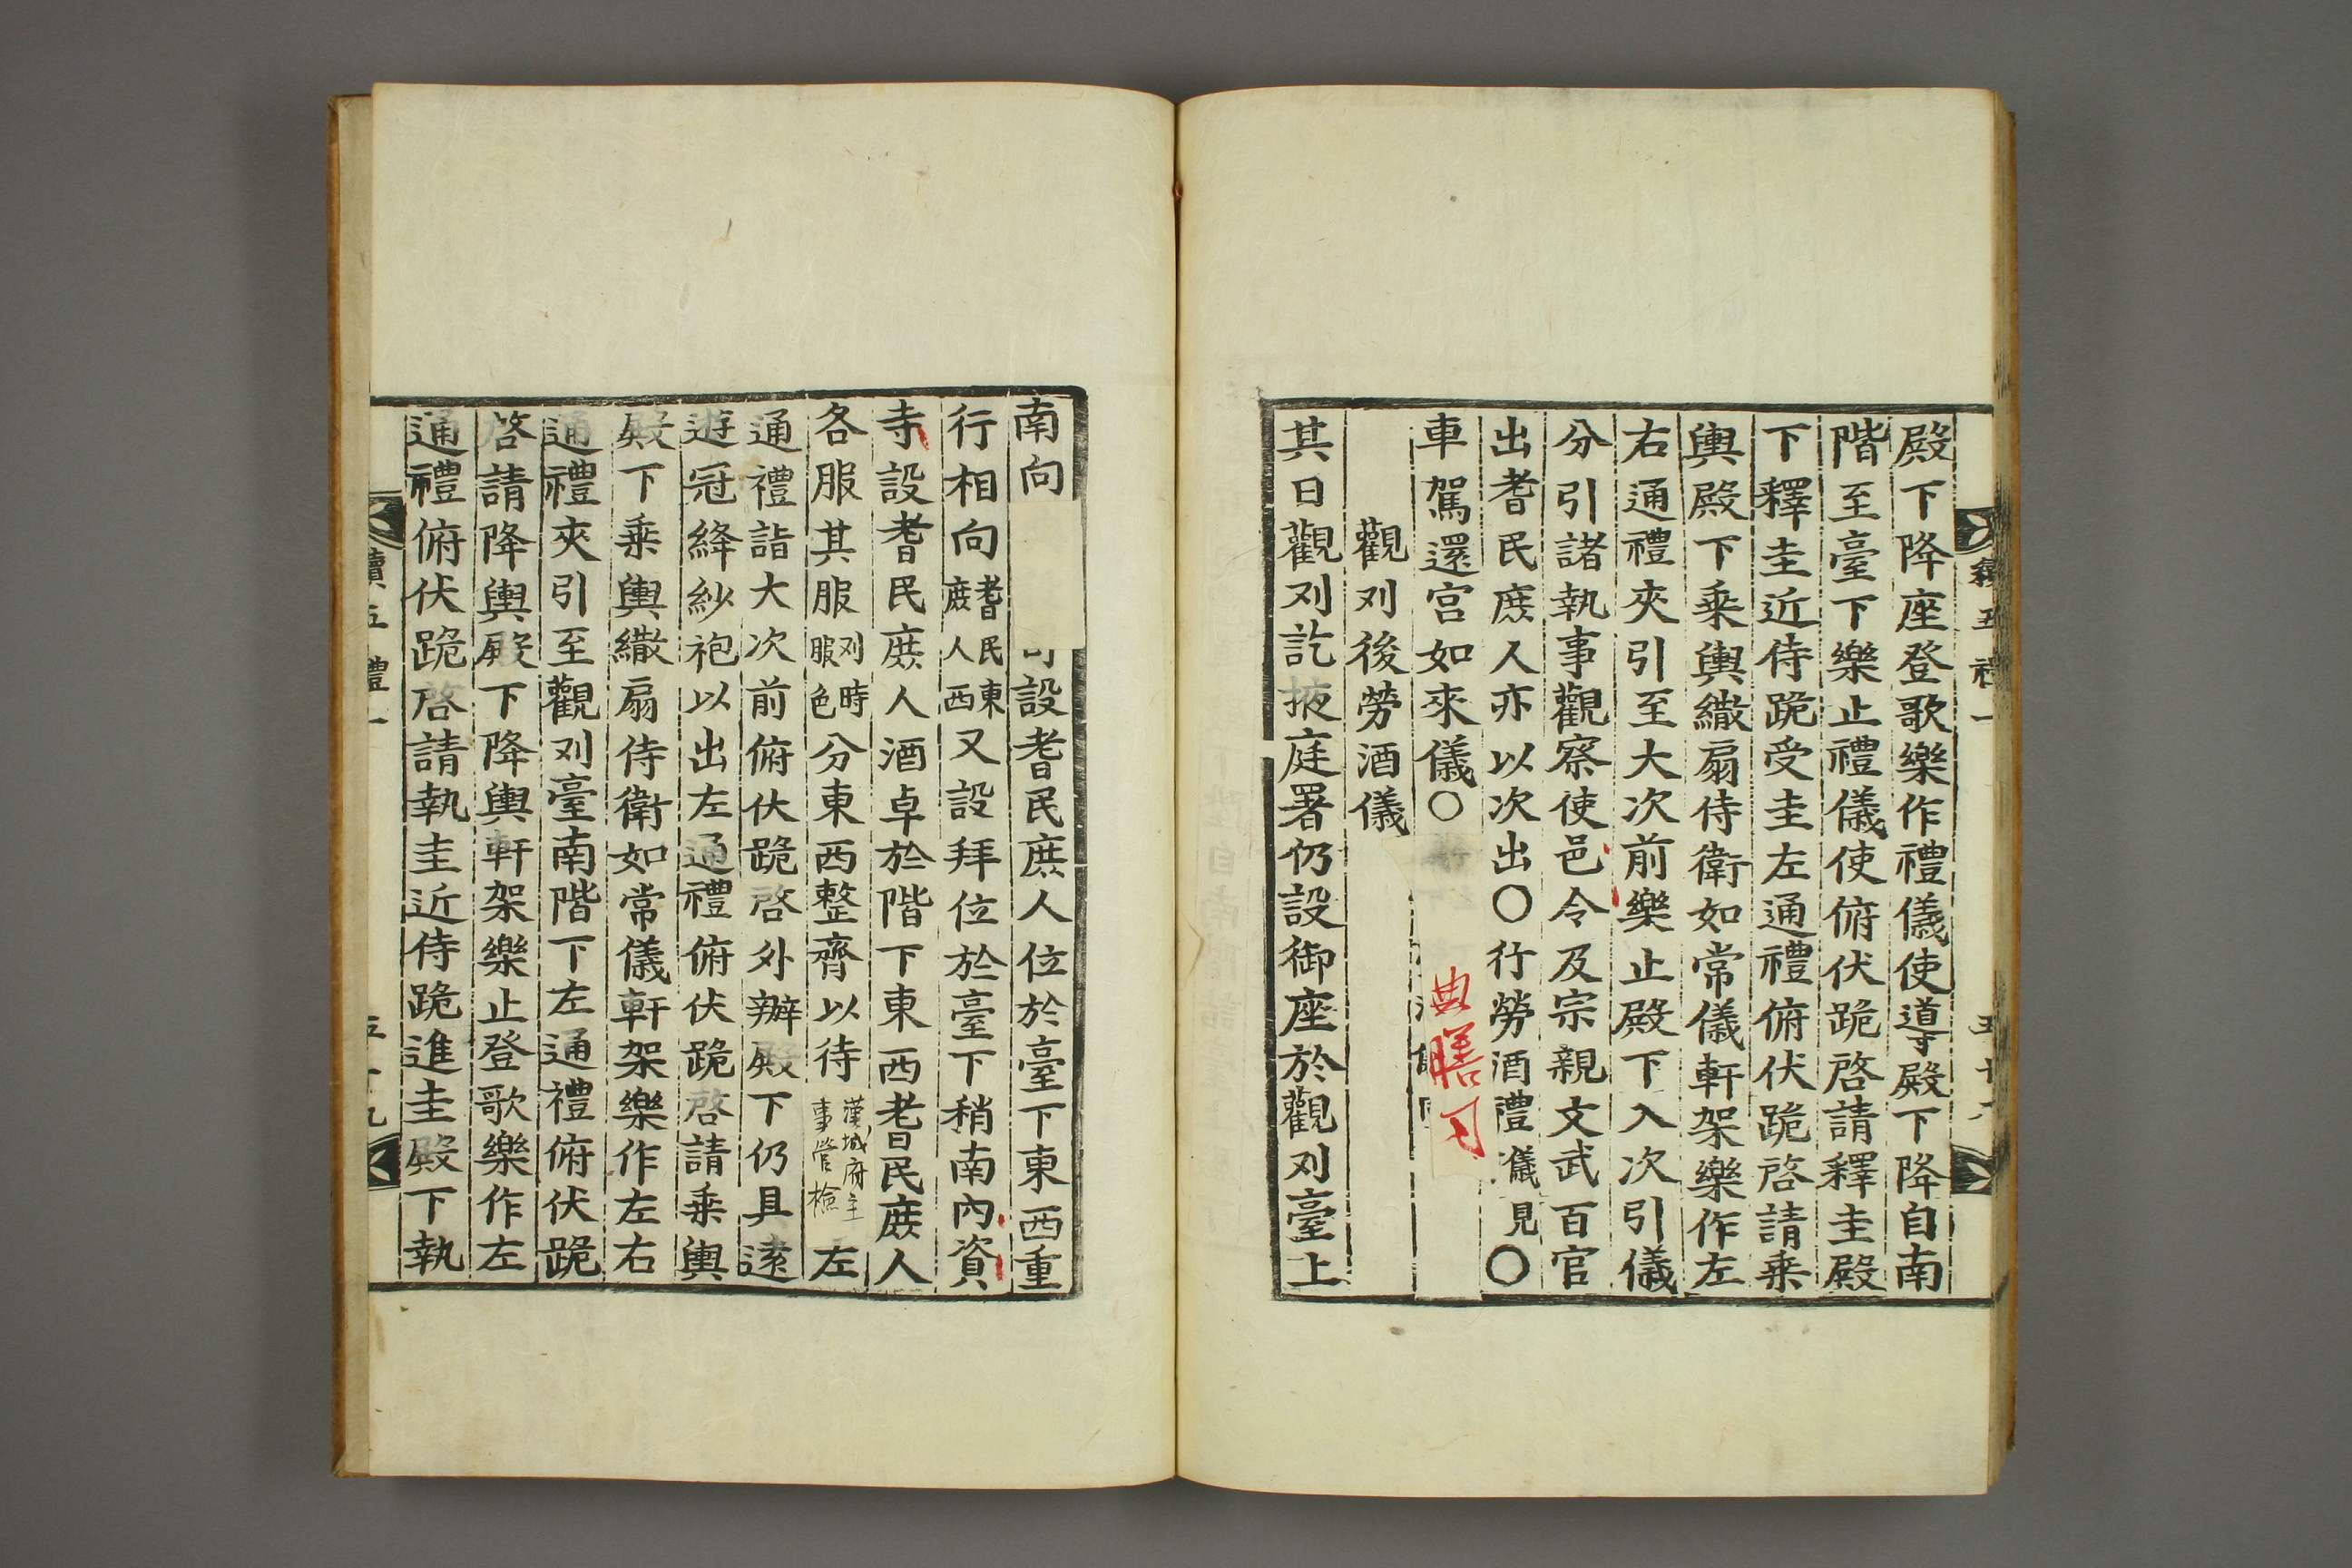 殿下降座登歌樂作禮儀使導殿下降自南
階至臺下樂止禮儀使俯伏跪啓請釋圭殿
下釋圭近侍跪受圭左通禮俯伏跪啓請乘
輿殿下乘輿繖扇侍衛如常儀軒架樂作左
右通禮夾引至大次前樂止殿下入次引儀
分引諸執事觀察使邑令及宗親文武百官
出耆民庶人亦以次出〇行勞酒禮儀見〇
車駕還宮如來儀〇
典膳司
觀刈後勞酒儀
其日觀刈訖掖庭署仍設御座於觀刈臺上
南向
設耆民庶人位於臺下東西重
行相向耆民東庶人西又設拜位於臺下稍南內資
寺設耆民庶人酒卓於階下東西耆民庶人
各服其服刈時服色分東西整齊以待漢城府主事管檢左
通禮詣大次前俯伏跪啓外辦殿下仍具遠
遊冠絳紗袍以出左通禮俯伏跪啓請乘輿
殿下乘輿繖扇侍衛如常儀軒架樂作左右
通禮夾引至觀刈臺南階下左通禮俯伏跪
啓請降輿殿下降輿軒架樂止登歌樂作左
通禮俯伏跪啓請執圭近侍跪進圭殿下執